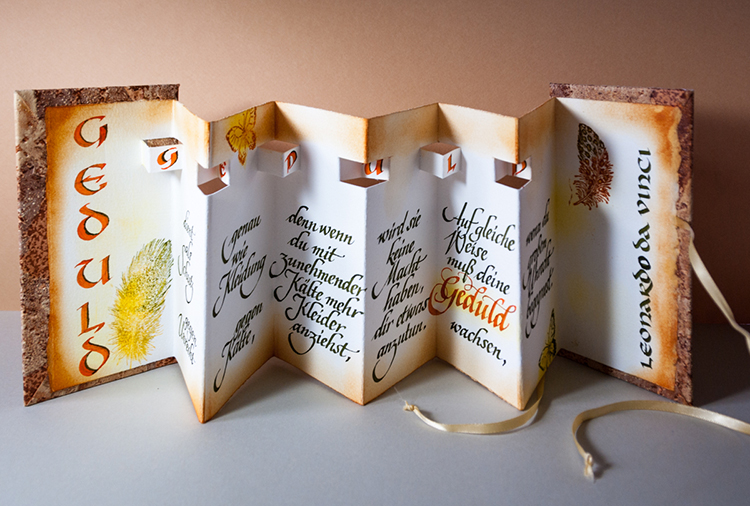 GEDULD
G E D U L D
genau
wie
Kleidung
gegen
Kälte,
denn wenn
du mit
zunehmender
Kälte mehr
Kleider
anziehst,
wird sie
keine
Macht
haben
dir etwas
anzutun.
Auf gleiche
Weise
muß deine
Geduld
wachsen,
wenn du
LEONARDO DA VINCI